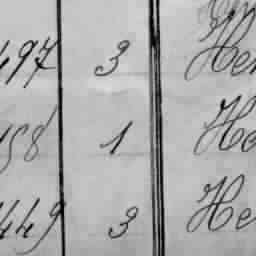 497 3 Hen
158 1 He
449 3 He